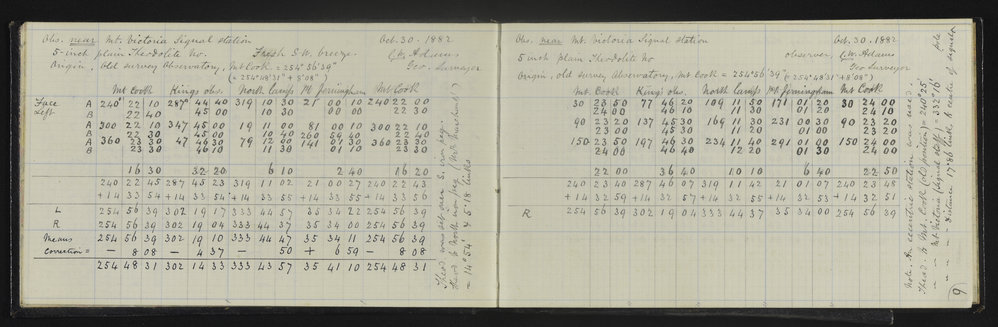 Obs. near Mt. Victoria Signal station Oct. 30 - 1882
5-inch plain Theodolite No. Fresh S.W. breeze. C.W. Adams
Origin, Old Survey Observatory, Mt Cook = 254° 56' 39" Geo-Surveyor
(= 254° 48' 31" + 8' 08")
Mt Cook King's obs. North Camp Mt Jerningham Mt Cook
Face A 240° 22 10 287° 44 40 319 10 30 21 00 10 240 22 00
Left B 22 40 45 00 10 30 00 00 22 30
A 300 22 10 347 45 00 19 11 00 81 00 10 300 22 10
B 22 30 45 00 10 40 22 40
A 360 23 30 47 46 30 79 12 00 141 01 30 360 23 30
B 23 30 46 10 11 30 01 10 23 30
16 30 32 20 6 10 2 40 16 20
240 22 45 287 45 23 319 11 02 21 00 27 240 22 43
+14 33 54 +14 33 54 +14 33 55 +14 33 55 +14 33 56
L 254 56 39 302 19 17 333 44 57 35 34 22 254 56 39
R 254 56 39 302 19 04 333 44 37 35 34 00 254 56 39
Means 254 56 39 302 19 10 333 44 47 35 34 11 254 56 39
Correction = - 8 08 - 4 37 - 50 + 6 59 - 8 08
254 48 31 302 14 33 333 43 57 35 41 10 254 48 31
Theod. was set over S. iron peg.
Theod. to North iron peg.
= 14° 54' & 5.18 links
Obs. near Mt. Victoria Signal station Oct. 30 - 1882
5 inch plain Theodolite No observer, C.W. Adams
Geo-Surveyor
Origin, old survey Observatory, Mt Cook = 254° 56' 39" (= 254° 48' 31" + 8' 08")
Mt. Cook King's obs. North Camp Mt. Jerningham Mt Cook
30 23 50 77 46 20 109 11 50 171 01 20 30 24 00
24 00 46 10 11 30 01 20 24 10
90 23 20 137 45 30 169 11 30 231 00 30 90 23 20
23 00 45 30 11 20 01 00 23 20
150 23 50 197 46 30 234 11 40 291 01 00 150 24 00
24 00 46 40 12 20 01 30 24 00
22 00 36 40 10 10 6 40 22 50
240 23 40 287 46 07 319 11 42 21 01 07 240 23 48
+14 32 59 +14 32 57 +14 32 55 +14 32 53 +14 32 51
R 254 56 39 302 19 04 333 44 37 35 34 00 254 56 39
Note. An eccentric station was used.
Theod. to Mt. Cook (old position) = 240° 25'
" " Mt Victoria (signal staff) = 332° 16'
" " " Distance 17.86 links to centre of signal pole
9